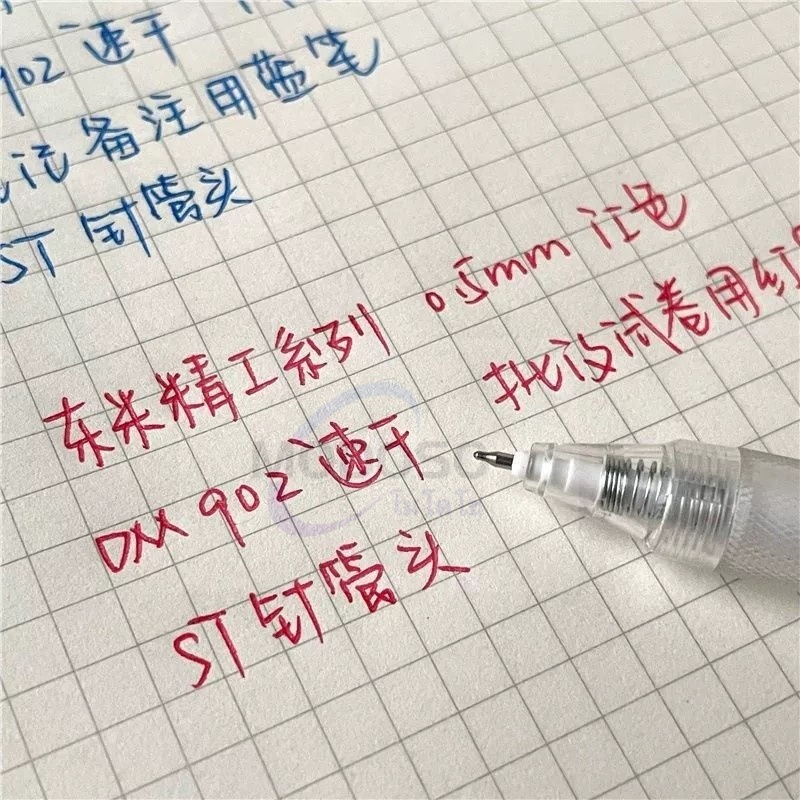 902 速干
记备注用蓝笔
ST 针管头
东米精工系列 0.5mm 红色
批改试卷用红
DM 902 速干
ST 针管头